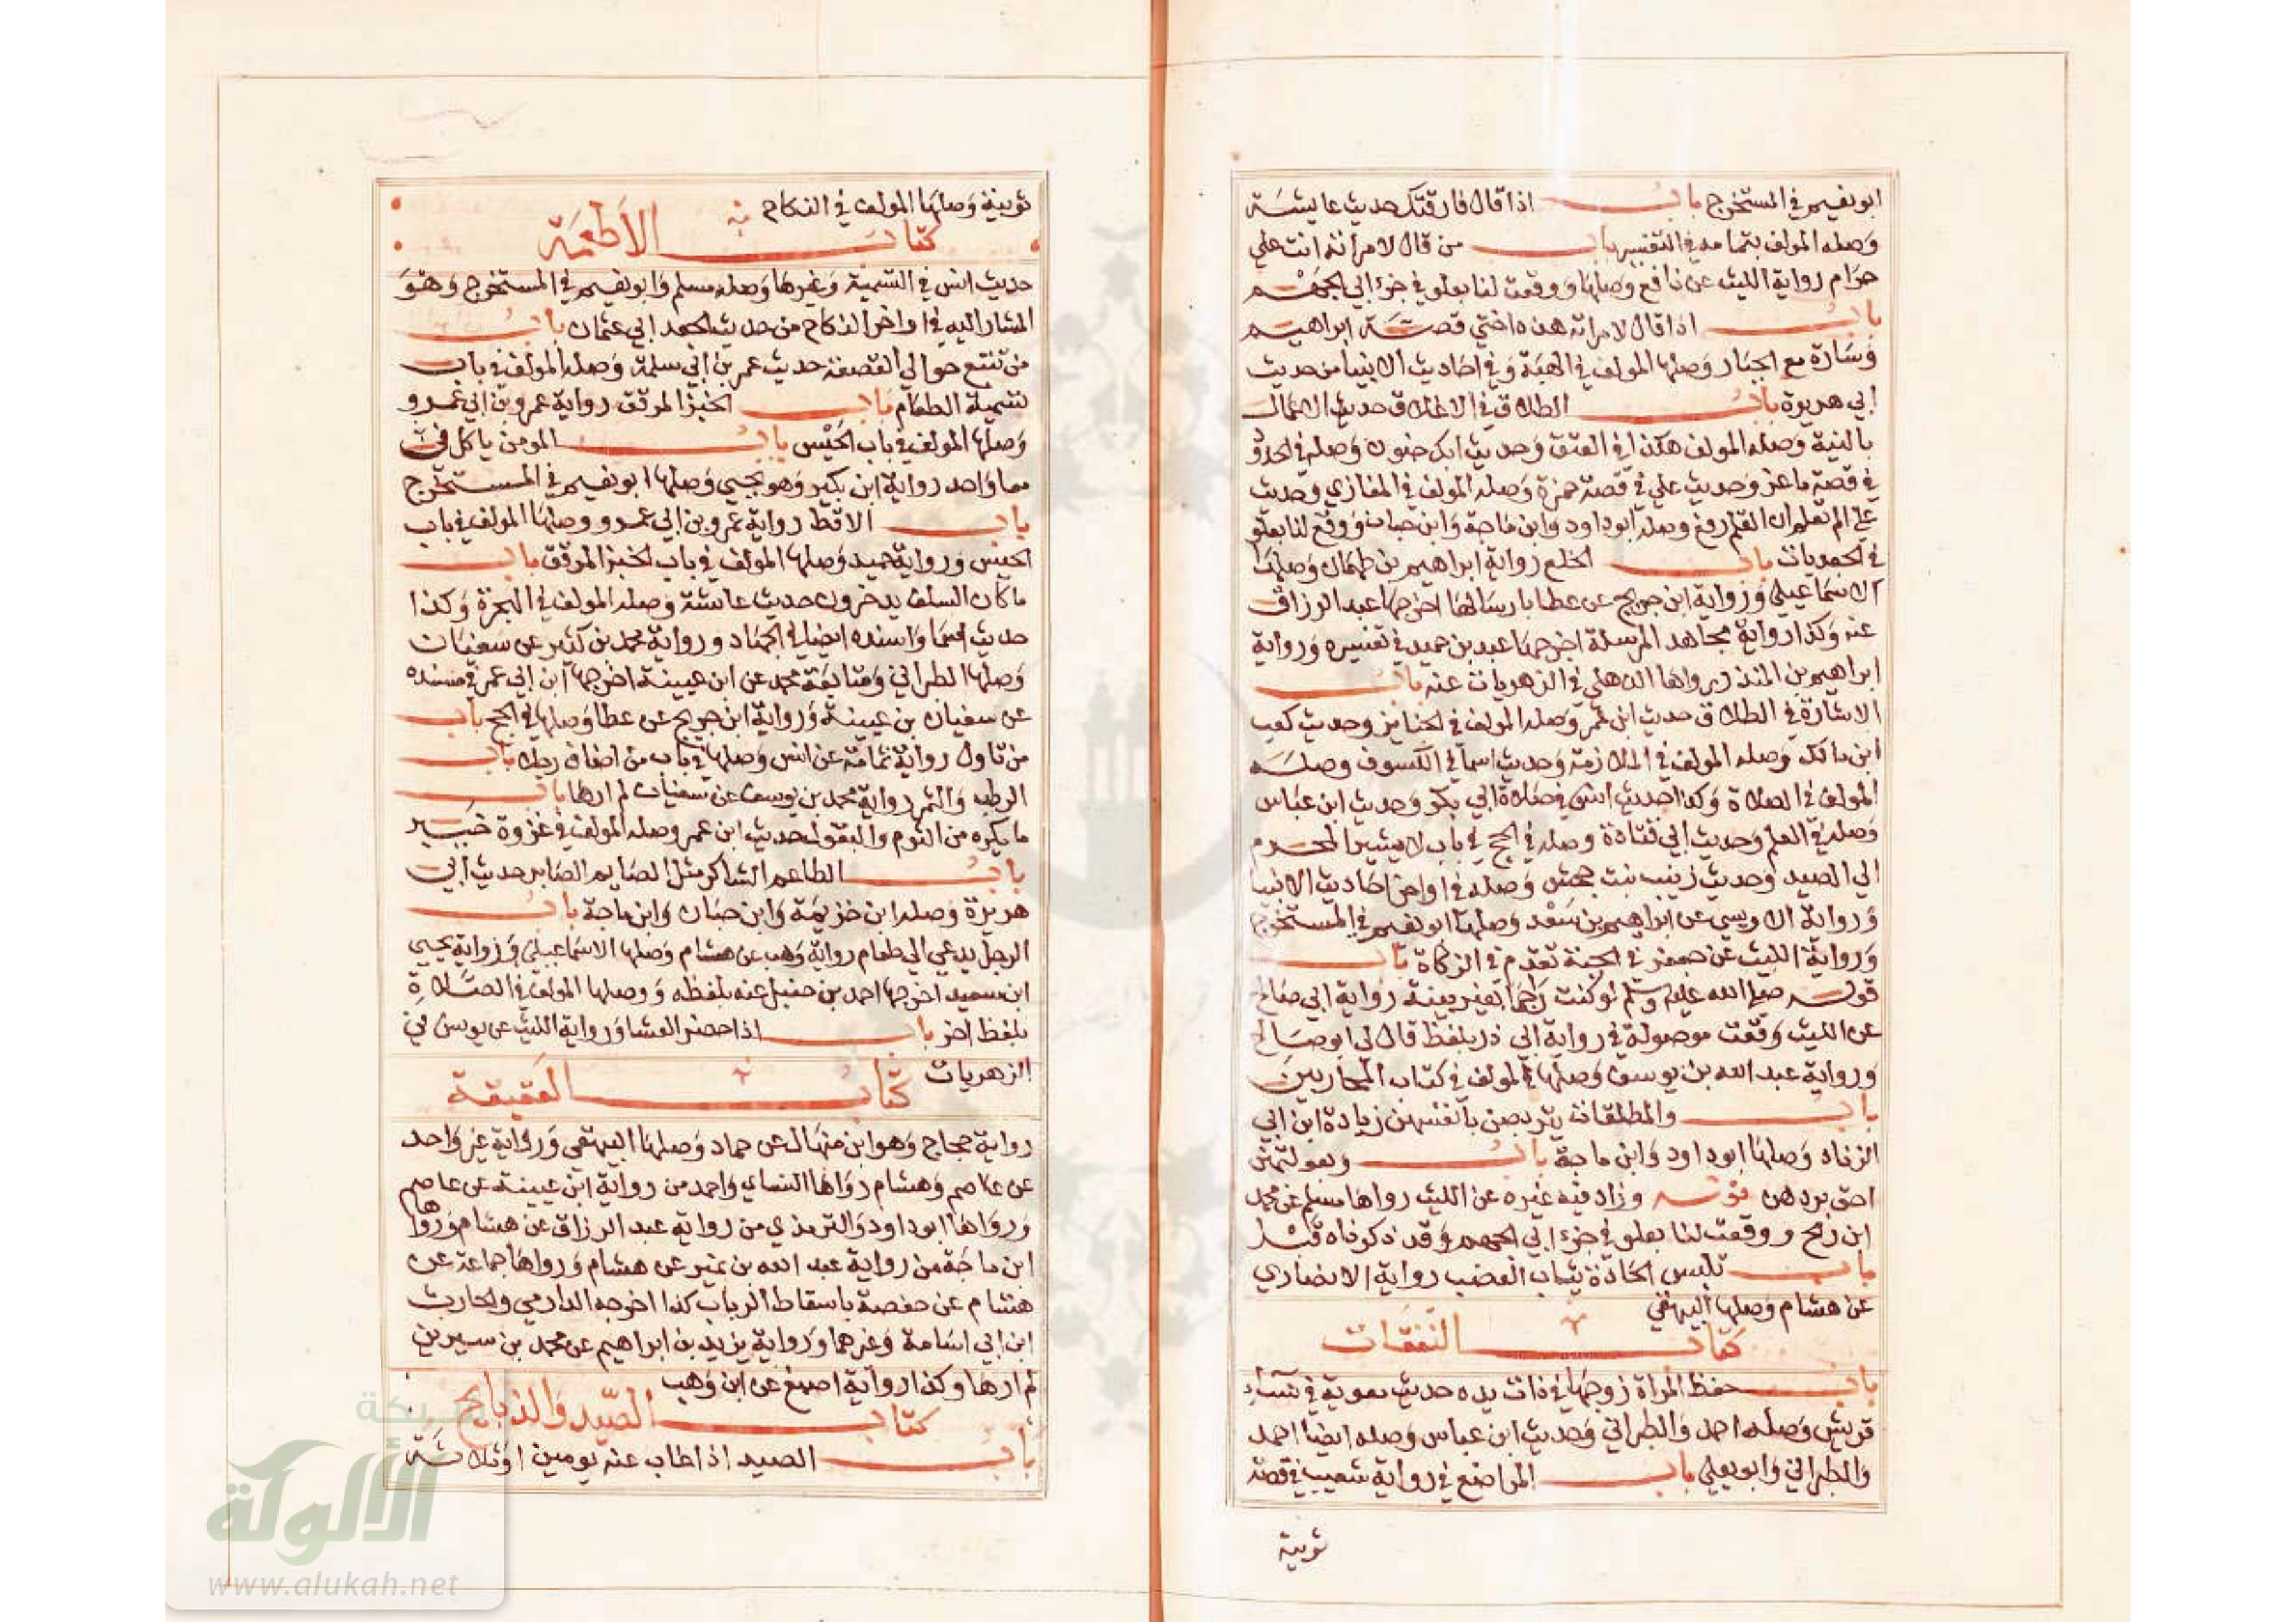 ابونعيم في المستخرج باب اذا قال فارقتك حديث عايشة
وصله المولف بتمامه في التفسير باب من قال لامرأته انت علي
حرام رواية الليث عن نافع وصلها ووقعت لنا بعلو في جزء ابي الجهم
باب اذا قال لامراته هذه اختي قصة ابراهيم
وسارة مع الجبار وصلها المولف في الهبة وفي احاديث الانبيا من حديث
ابي هريرة باب الطلاق في الاغلاق حديث الاعمال
بالنية وصله المولف هكذا في العتق وحديث ابك جنون وصله في الحدود
في قصة ماعز وحديث علي في قصة حمزة وصله المولف في المغازي وحديث
علي الم تعلم ان القلم رفع وصله ابوداود وابن ماجة وابن حبان ووقع لنا بعلو
في الجعديات باب الخلع رواية ابراهيم بن طهمان وصلها
الاسماعيلي ورواية ابن جريج عن عطا بارسالها اخرجها عبد الرزاق
عنه وكذا رواية مجاهد المرسلة اخرجها عبد بن حميد في تفسيره ورواية
ابراهيم بن المنذر رواها الذهلي في الزهريات عنه باب
الاشارة في الطلاق حديث ابن عمر وصله المولف في الجنايز وحديث كعب
ابن مالك وصله المولف في الملازمة وحديث اسما في الكسوف وصله
المولف في الصلاة وكذا حديث انس في صلاة ابي بكر وحديث ابن عباس
وصله في العلم وحديث ابي قتادة وصله في الحج في باب لا يشير المحرم
الي الصيد وحديث زينب بنت جحش وصله في اواخر احاديث الانبيا
ورواية الاويسي عن ابراهيم بن سعد وصلها ابو نعيم في المستخرج
ورواية الليث عن جعفر في الجبة تقدم في الزكاة باب
قوله صلي الله عليه وسلم لو كنت راجما بغير بينة رواية ابي صالح
عن الليث وقعت موصولة في رواية ابي ذر بلفظ قال لي ابو صالح
ورواية عبد الله بن يوسف وصلها المولف في كتاب المحاربين
باب والمطلقات يتربصن بانفسهن زيادة ابن ابي
الزناد وصلها ابو داود وابن ماجة باب وبعولتهن
احق بردهن قوله وزاد فيه غيره عن الليث رواها مسلم عن محمد
ابن رمح ووقعت لنا بعلو في جزء ابي الجهم وقد ذكرناه قبل
باب تلبس الحادة ثياب العصب رواية الانصاري
عن هشام وصلها البيهقي
كتاب النفقات
باب حفظ المراة زوجها في ذات يده حديث معوية في نساء
قريش وصله احمد والطبراني وحديث ابن عباس وصله ايضا احمد
والطبراني وابو يعلي باب المراضع في رواية شعيب في قصة
ثويبة
ثويبة وصلها المولف في النكاح
كتاب الاطعمة
حديث انس في التسمية وغيرها وصله مسلم وابو نعيم في المستخرج وهو
المشار اليه في اواخر النكاح من حديث الجعد ابي عثمان باب
من تتبع حوالي القصعة حديث عمر بن ابي سلمة وصله المولف في باب
تسمية الطعام باب الخبز المرقق رواية عمرو بن ابي عمرو
وصلها المولف في باب الحيس باب المومن ياكل في
معا واحد رواية ابن بكير وهو يحيي وصلها ابو نعيم في المستخرج
باب الاقط رواية عمرو بن ابي عمرو وصلها المولف في باب
الحيس ورواية حميد وصلها المولف في باب الخبز المرقق باب
ما كان السلف يدخرون حديث عايشة وصله المولف في الهجرة وكذا
حديث اسما واسنده ايضا في الجهاد ورواية محمد بن كثير عن سفيان
وصلها الطبراني ومتابعة محمد عن ابن عيينة اخرجها ابن ابي عمر في مسنده
عن سفيان بن عيينة ورواية ابن جريج عن عطا وصلها في الحج باب
من ناول رواية ثمامة عن انس وصلها في باب من اضاف رجلا باب
الرطب والتمر رواية محمد بن يوسف عن سفيان لم ارها باب
ما يكره من الثوم والبقول حديث ابن عمر وصله المولف في غزوة خيبر
باب الطاعم الشاكر مثل الصايم الصابر حديث ابي
هريرة وصله ابن خزيمة وابن حبان وابن ماجة باب
الرجل يدعي الي طعام رواية وهب عن هشام وصلها الاسماعيلي ورواية يحيي
ابن سعيد اخرجها احمد بن حنبل عنه بلفظه ووصلها المولف في الصلاة
بلفظ اخر باب اذا حضر العشا ورواية الليث عن يونس في
الزهريات
كتاب العقيقة
رواية حجاج وهو ابن منهال عن حماد وصلها البيهقي ورواية غير واحد
عن عاصم وهشام رواها النساي واحمد من رواية ابن عيينة عن عاصم
ورواها ابو داود والترمذي من رواية عبد الرزاق عن هشام ورواها
ابن ماجة من رواية عبد الله بن نمير عن هشام ورواها جماعة عن
هشام عن حفصة باسقاط الرباب كذا اخرجه الدارمي والحارث
ابن ابي اسامة وغيرهما ورواية يزيد بن ابراهيم عن محمد بن سيرين
لم ارها وكذا رواية اصبغ عن ابن وهب
كتاب الصيد والذبايح
باب الصيد اذا غاب عنه يومين او ثلاثة
شبكة
الألوكة
www.alukah.net